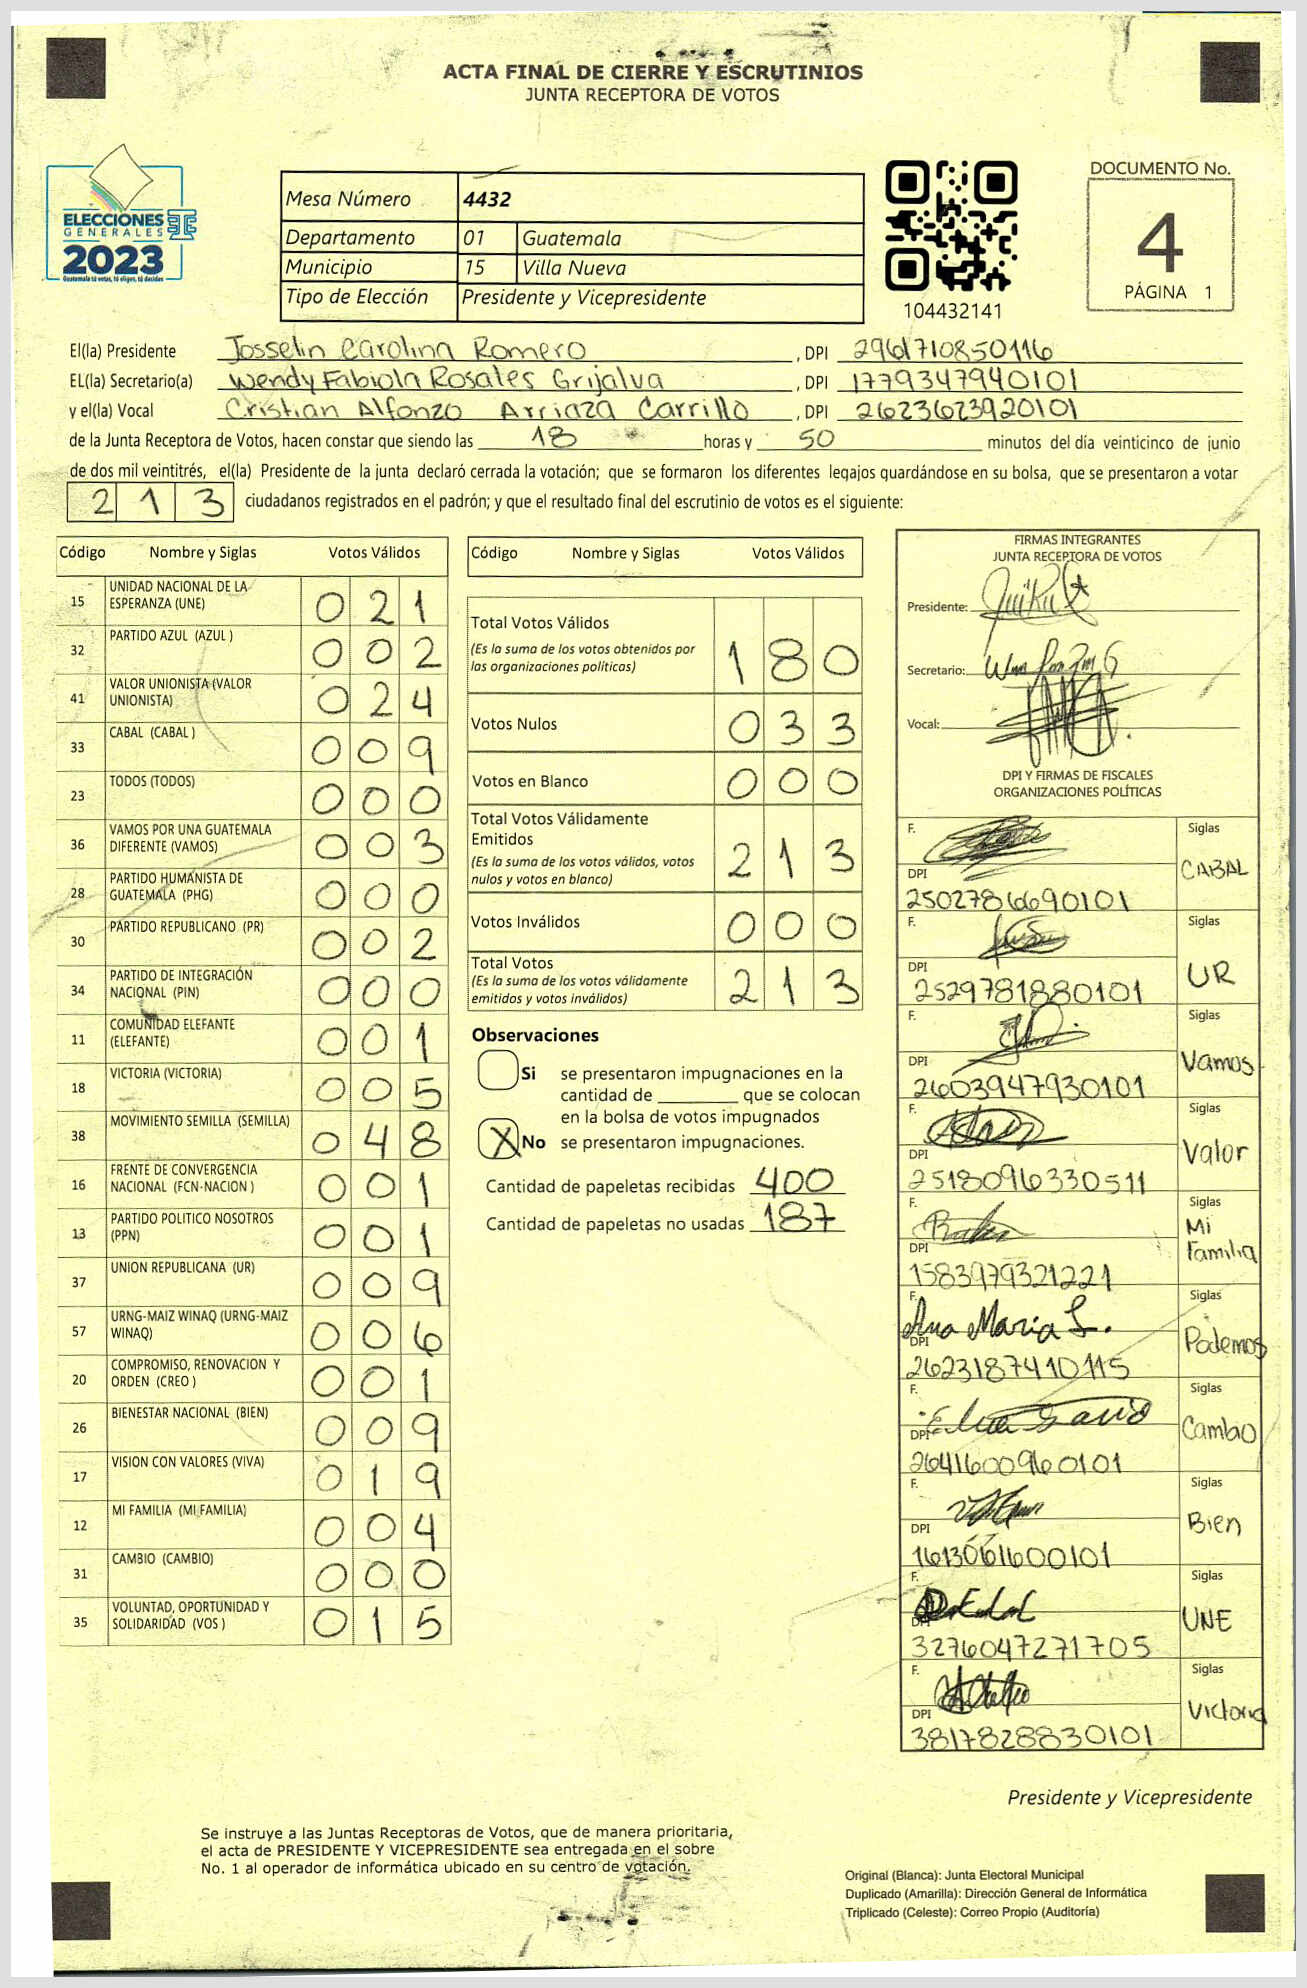 ACTA FINAL DE CIERRE Y ESCRUTINIOS
JUNTA RECEPTORA DE VOTOS
ELECCIONES
GENERALES
2023
Guatemala tú votas, tú eliges, tú decides
Mesa Número 4432
Departamento 01 Guatemala
Municipio 15 Villa Nueva
Tipo de Elección Presidente y Vicepresidente
104432141
DOCUMENTO No.
4
PÁGINA 1
El(la) Presidente Josselin Carolina Romero , DPI 2961710850116
EL(la) Secretario(a) Wendy Fabiola Rosales Grijalva , DPI 1779347940101
y el(la) Vocal Cristian Alfonzo Arriaza Carrillo , DPI 2623623920101
de la Junta Receptora de Votos, hacen constar que siendo las 18 horas y 50 minutos del día veinticinco de junio
de dos mil veintitrés, el(la) Presidente de la junta declaró cerrada la votación; que se formaron los diferentes legajos guardándose en su bolsa, que se presentaron a votar
213 ciudadanos registrados en el padrón; y que el resultado final del escrutinio de votos es el siguiente:
Código Nombre y Siglas Votos Válidos
15 UNIDAD NACIONAL DE LA ESPERANZA (UNE) 021
32 PARTIDO AZUL (AZUL ) 002
41 VALOR UNIONISTA (VALOR UNIONISTA) 024
33 CABAL (CABAL ) 009
23 TODOS (TODOS) 000
36 VAMOS POR UNA GUATEMALA DIFERENTE (VAMOS) 003
28 PARTIDO HUMANISTA DE GUATEMALA (PHG) 000
30 PARTIDO REPUBLICANO (PR) 002
34 PARTIDO DE INTEGRACIÓN NACIONAL (PIN) 000
11 COMUNIDAD ELEFANTE (ELEFANTE) 001
18 VICTORIA (VICTORIA) 005
38 MOVIMIENTO SEMILLA (SEMILLA) 048
16 FRENTE DE CONVERGENCIA NACIONAL (FCN-NACION ) 001
13 PARTIDO POLITICO NOSOTROS (PPN) 001
37 UNION REPUBLICANA (UR) 009
57 URNG-MAIZ WINAQ (URNG-MAIZ WINAQ) 006
20 COMPROMISO, RENOVACION Y ORDEN (CREO ) 001
26 BIENESTAR NACIONAL (BIEN) 009
17 VISION CON VALORES (VIVA) 019
12 MI FAMILIA (MI FAMILIA) 004
31 CAMBIO (CAMBIO) 000
35 VOLUNTAD, OPORTUNIDAD Y SOLIDARIDAD (VOS ) 015
Código Nombre y Siglas Votos Válidos
Total Votos Válidos 180
(Es la suma de los votos obtenidos por
las organizaciones políticas)
Votos Nulos 033
Votos en Blanco 000
Total Votos Válidamente
Emitidos 213
(Es la suma de los votos válidos, votos
nulos y votos en blanco)
Votos Inválidos 000
Total Votos 213
(Es la suma de los votos válidamente
emitidos y votos inválidos)
Observaciones
Si se presentaron impugnaciones en la
cantidad de ________ que se colocan
en la bolsa de votos impugnados
X No se presentaron impugnaciones.
Cantidad de papeletas recibidas 400
Cantidad de papeletas no usadas 187
FIRMAS INTEGRANTES
JUNTA RECEPTORA DE VOTOS
Presidente:
Secretario:
Vocal:
DPI Y FIRMAS DE FISCALES
ORGANIZACIONES POLÍTICAS
F. Siglas
DPI CABAL
2502786690101
F. Siglas
DPI UR
2529781880101
F. Siglas
DPI Vamos
2603947930101
F. Siglas
DPI Valor
2518096330511
F. Siglas
DPI Mi Familia
1583979321221
F. Ana Maria L. Siglas
DPI Podemos
2623187410115
F. Siglas
DPI Cambio
2641600960101
F. Siglas
DPI Bien
1613061600101
F. Siglas
DPI UNE
3276047271705
F. Siglas
DPI Victoria
3817828830101
Presidente y Vicepresidente
Se instruye a las Juntas Receptoras de Votos, que de manera prioritaria,
el acta de PRESIDENTE Y VICEPRESIDENTE sea entregada en el sobre
No. 1 al operador de informática ubicado en su centro de votación.
Original (Blanca): Junta Electoral Municipal
Duplicado (Amarilla): Dirección General de Informática
Triplicado (Celeste): Correo Propio (Auditoría)